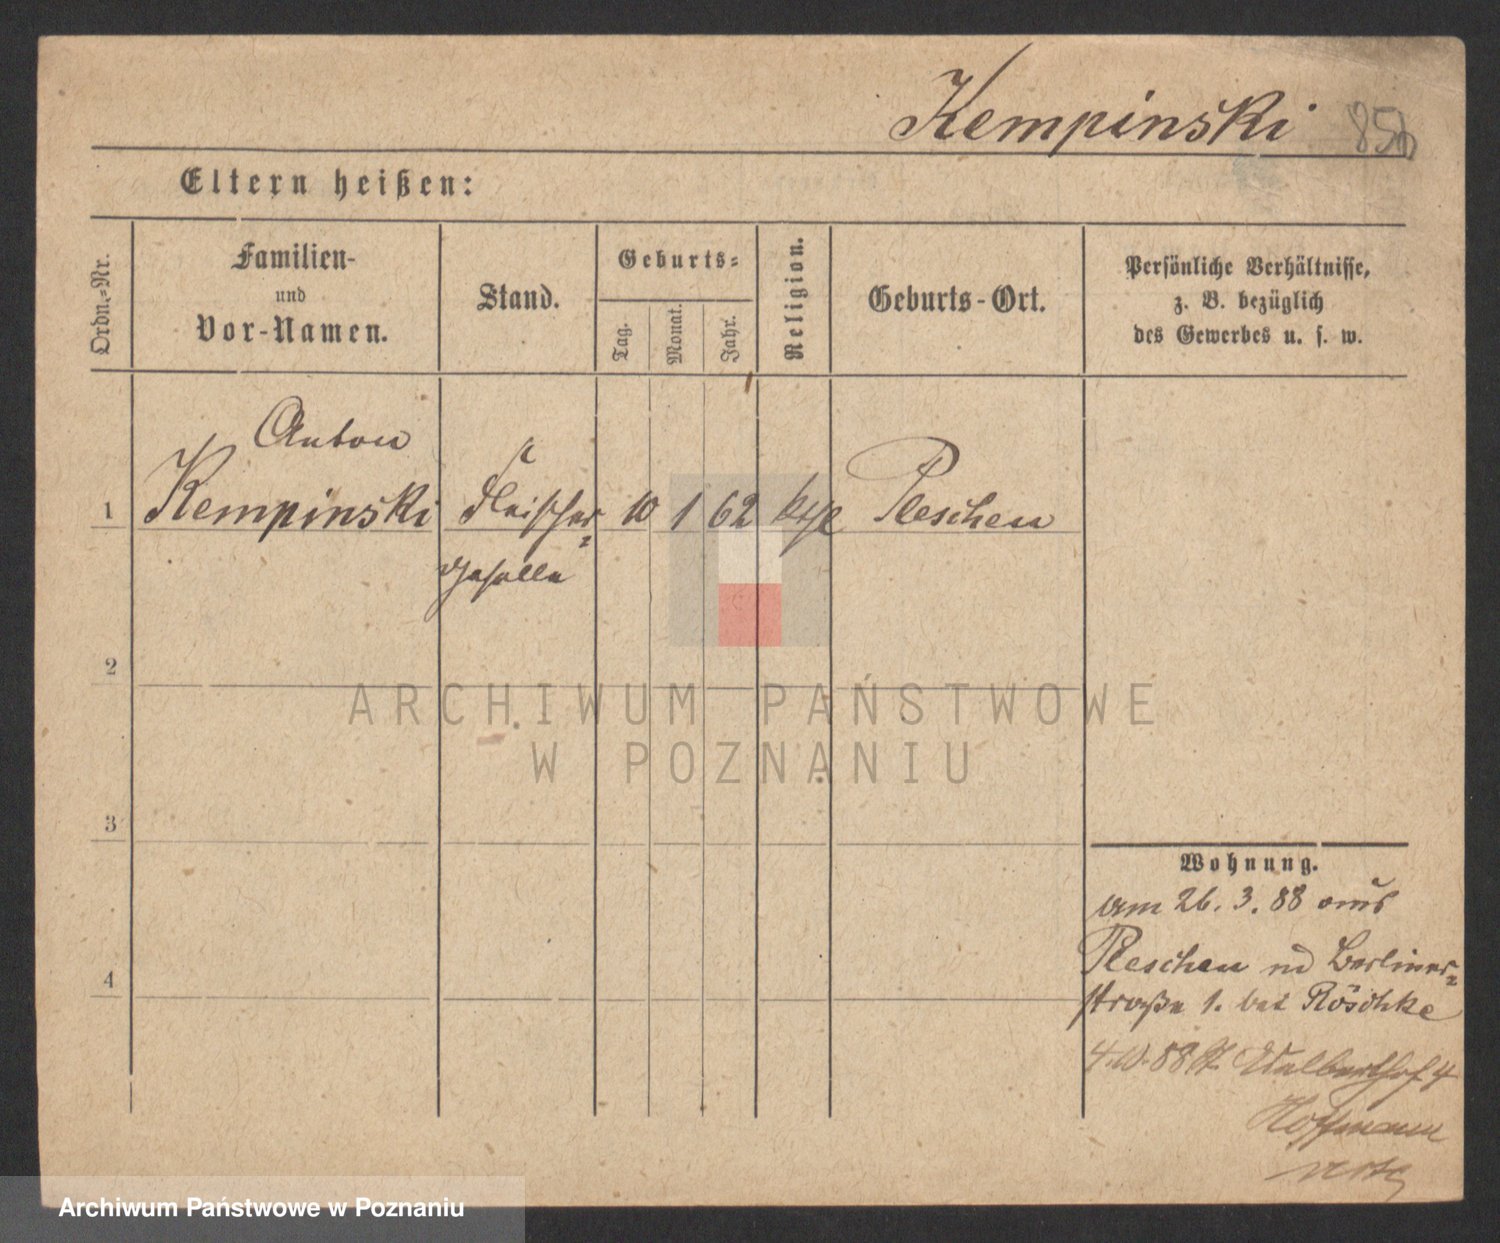 Kempinski 85b
Eltern heißen:
Ordn.-Nr.
Familien-
und
Vor-Namen.
Stand.
Geburts-
Tag.
Monat.
Jahr.
Religion.
Geburts-Ort.
Persönliche Verhältnisse,
z. B. bezüglich
des Gewerbes u. s. w.
Anton
1 Kempinski Fleischer- 10 1 62 kth Pleschen
geselle
2
3
4
Wohnung.
am 26. 3. 88 aus
Pleschen Berliner-
straße 1. bei Röschke
4. 10. 88 4
Hoffmann
ARCHIWUM PAŃSTWOWE
W POZNANIU
Archiwum Państwowe w Poznaniu